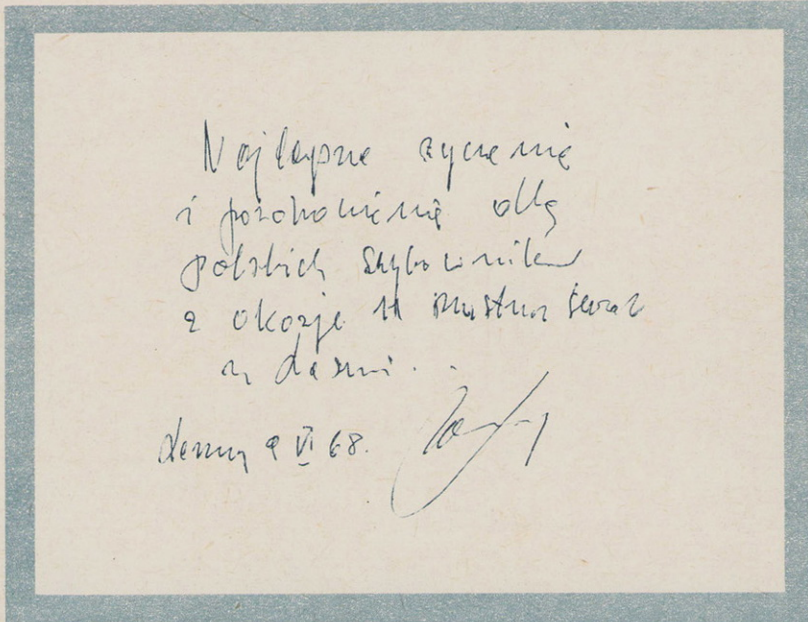 Najlepsze życzenia
i pozdrowienia dla
polskich szybowników
z okazji 11 mistrzostw świata
w Lesznie.
Leszno 9 VI 68.